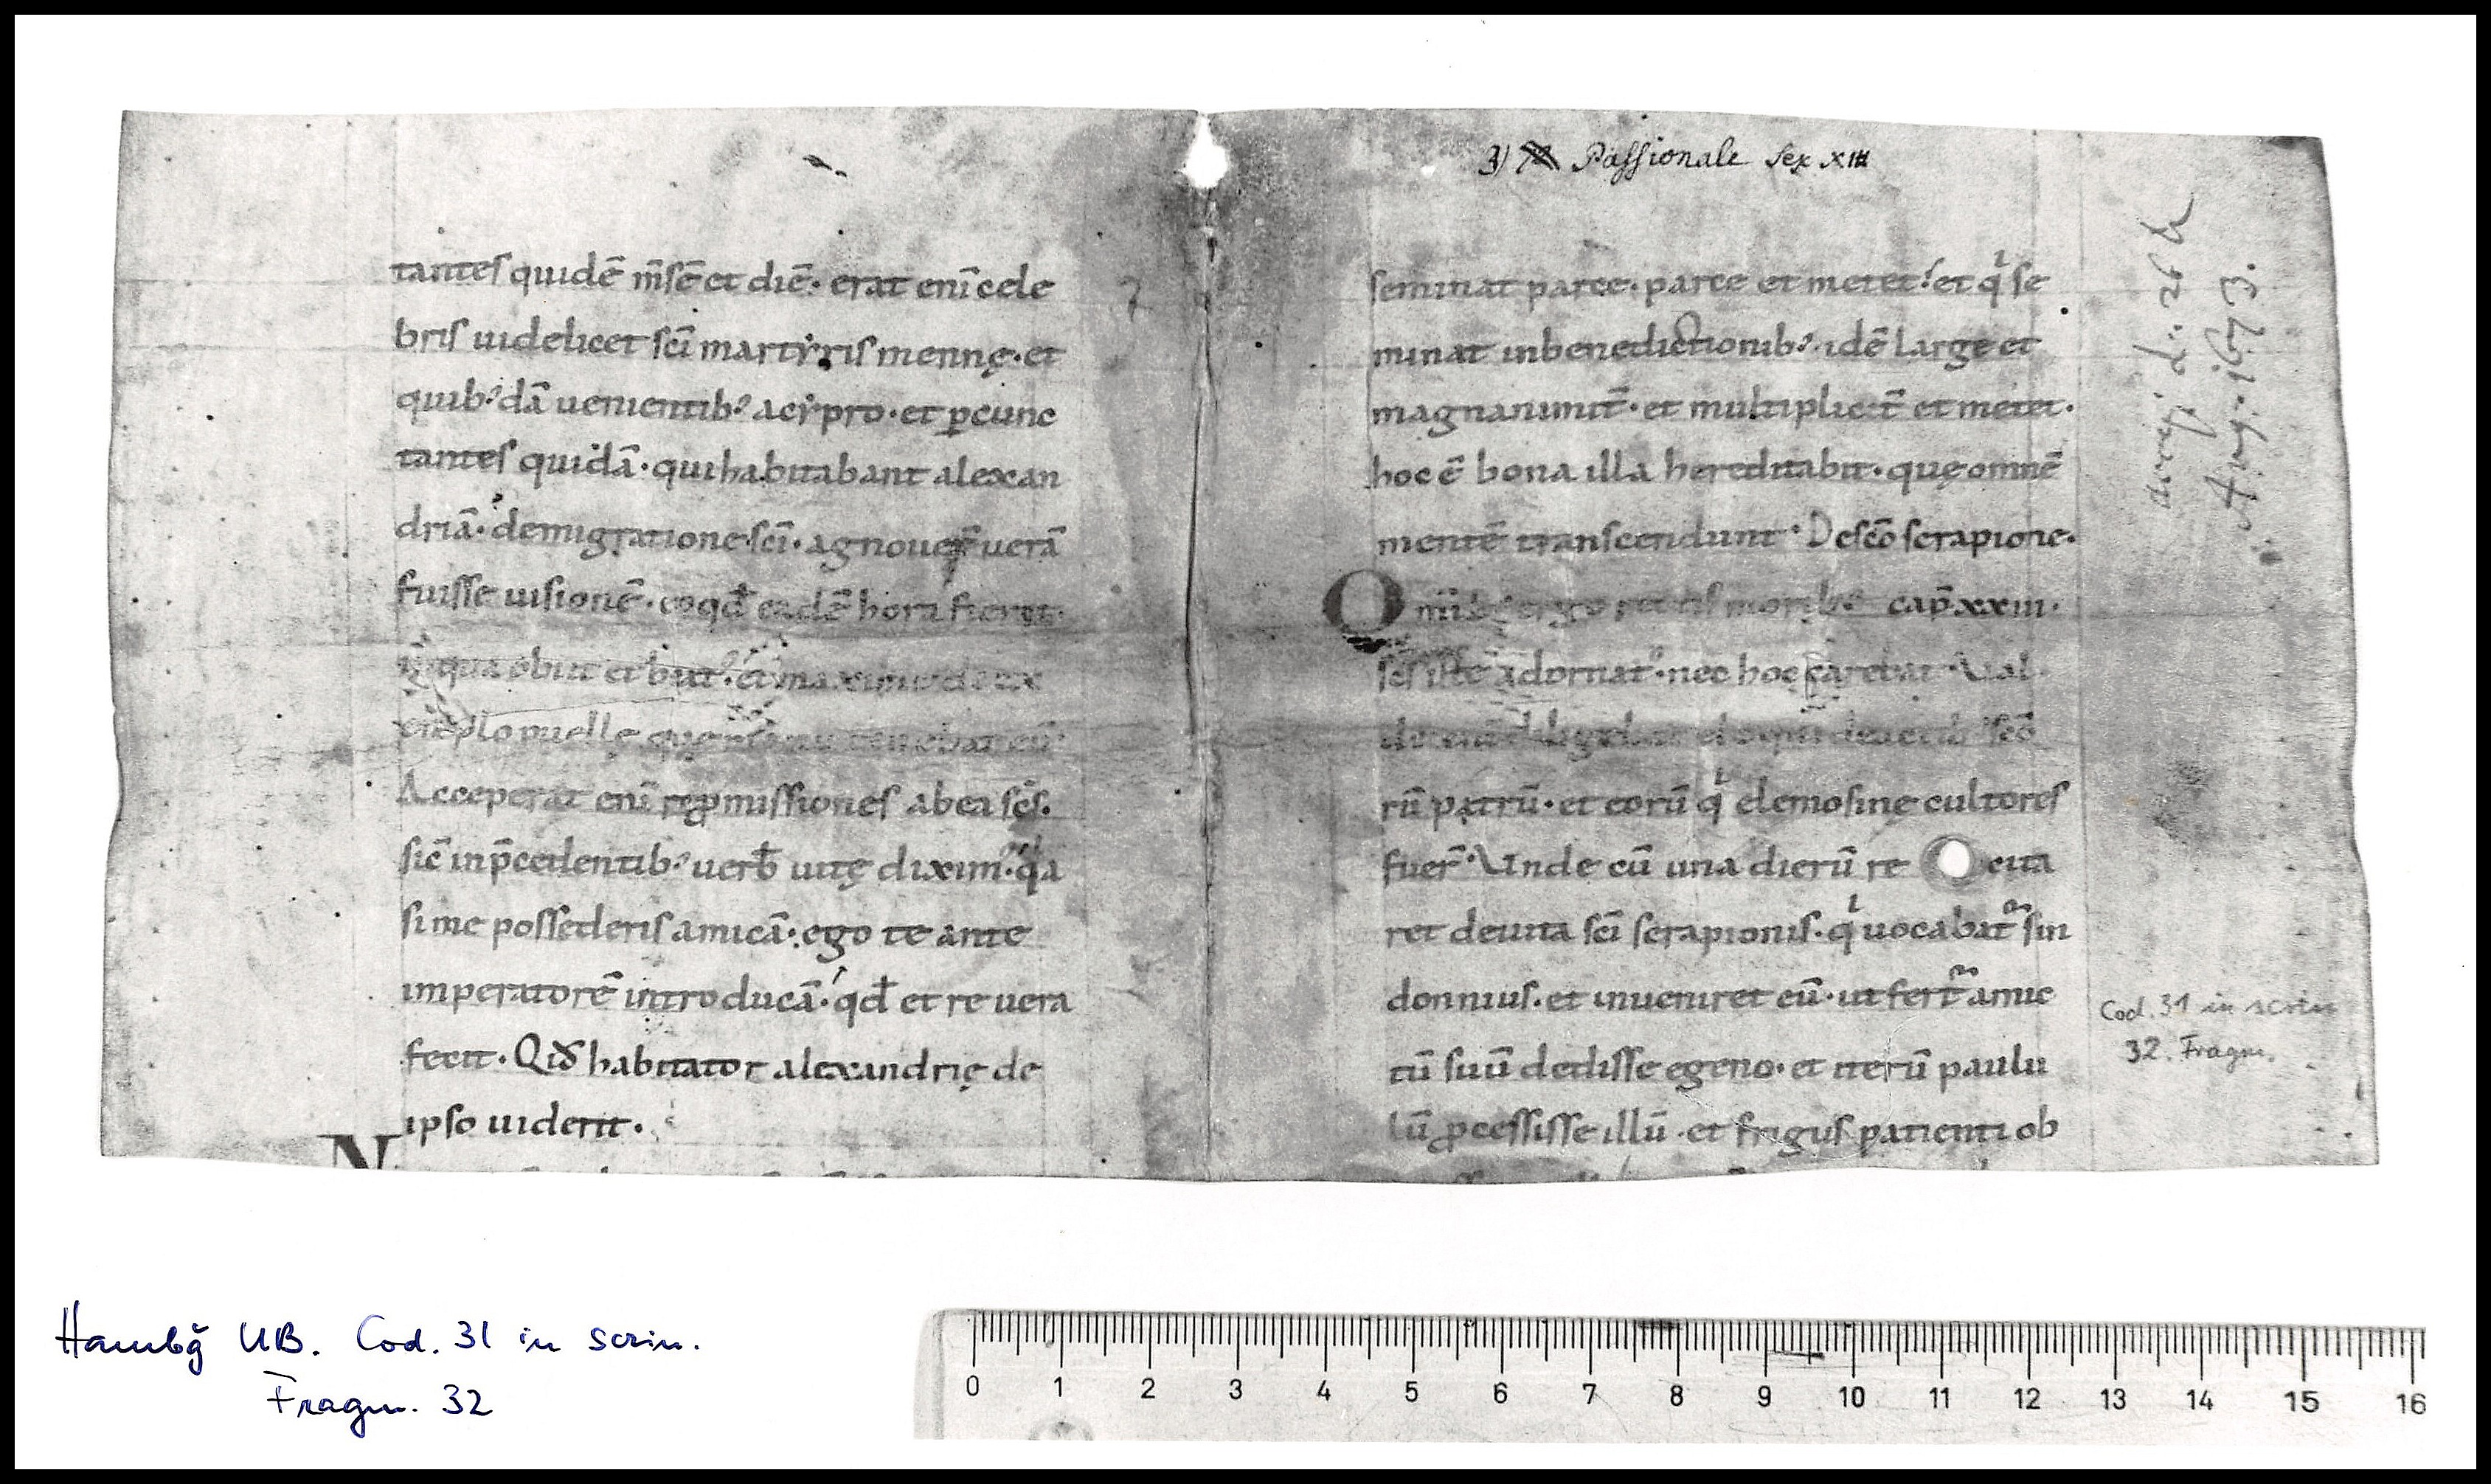 tantes quidē m̄sē et diē· erat eni̅ cele
bris uidelicet sc̄i martẏris mennę· et
quib᾽dā uenientib᾽ a cẏpro· et ꝑcunc
tantes quidā· qui habitabant alexan
driā· de migratione sc̄i· agnouer̄ uerā
fuisse uisionē· eo qd̄ eadē hora fieret·
in qua obiit et
plo puellę quę
Acceperat eni̅ repmissiones ab ea sc̄s·
sic̄ in p̄cedentib᾽ uerb̄ uitę dixim᾽· qa
si me possederis amicā· ego te ante
imperatorē introducā· qd̄ et re uera
fecit· Qid habitator alexandrię de
ipso uiderit·
N
3) Passionale sex XIII
seminat parce· parce et metet· et qi se
minat in benedictionib᾽· idē large et
magnanimit̄· et multiplicit̄ et metet·
hoc ē bona illa hereditabit· quę omnē
mentē transcendunt· De sc̄o serapione·
Omib᾽ ergo rectis morib᾽ cap̄ xxiii·
sc̄s iste adornat᾽· nec hoc carebat· Val
de eni̅ sc̄o
rū patrū· et eorū qi elemosine cultores
fuer̄· Unde cū una dierū re cita
ret de uita sc̄i serapionis· qi uocabat̄ sin
donnius· et inueniret eū· ut fert̄ amic
tū suū dedisse egeno· et iterū paulu
lū ꝓcessisse illū· et frigus patienti ob
d. 26
Aug. 1673.
Cod. 31 in scrin
32. Fragm.
Hambg̃ UB. Cod. 31 in scrin.
Fragm. 32
0 1 2 3 4 5 6 7 8 9 10 11 12 13 14 15 16